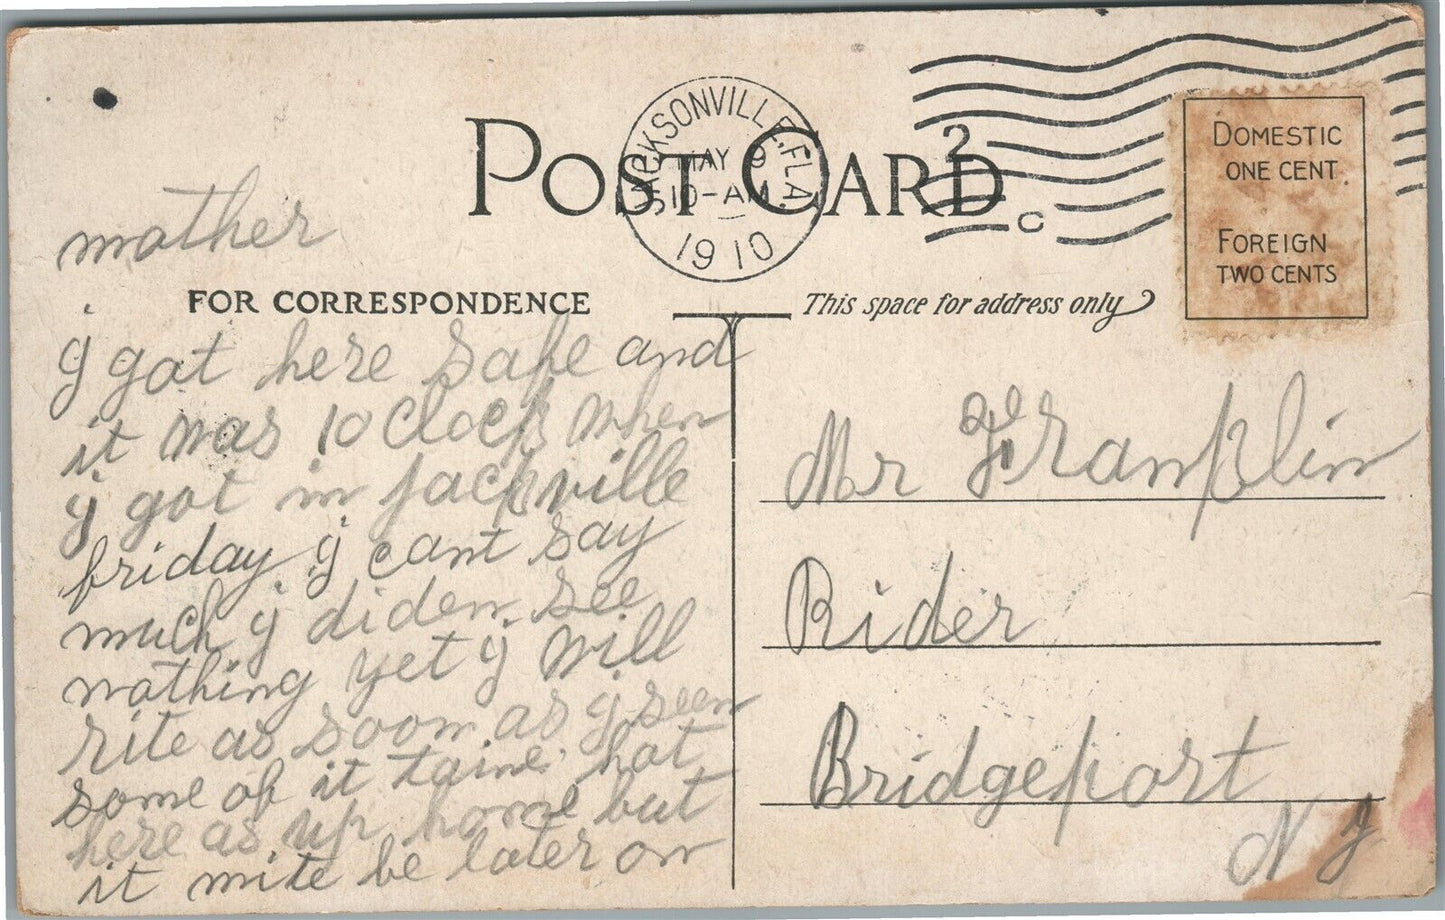 POST CARD
JACKSONVILLE, FLA.
MAY 9
5 10-AM
1910
2
C
DOMESTIC
ONE CENT.
FOREIGN
TWO CENTS
mother
FOR CORRESPONDENCE
This space for address only
j got here safe and
it was 10 clock when
j got in jackville
friday j cant say
much j diden see
nothing yet j will
rite as soon as j seen
some of it taint hot
here as up home but
it mite be later on
Mr Franklin
Rider
Bridgeport
N J